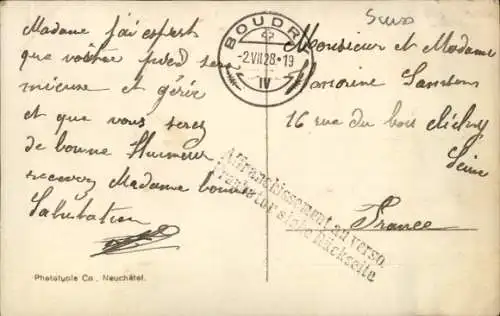 Madame j'ai espert
que vôtre pied sera
mieuse et gérie
et que vous serez
de bonne Humeur
recevez Madame bonne
Salutation
Phototypie Co., Neuchâtel.
BOUDRY
-2.VII.28.-19
IV
Affranchissement au verso.
Frankatur siehe Rückseite
Monsieur et Madame
16 rue du bois clichy
Seine
France